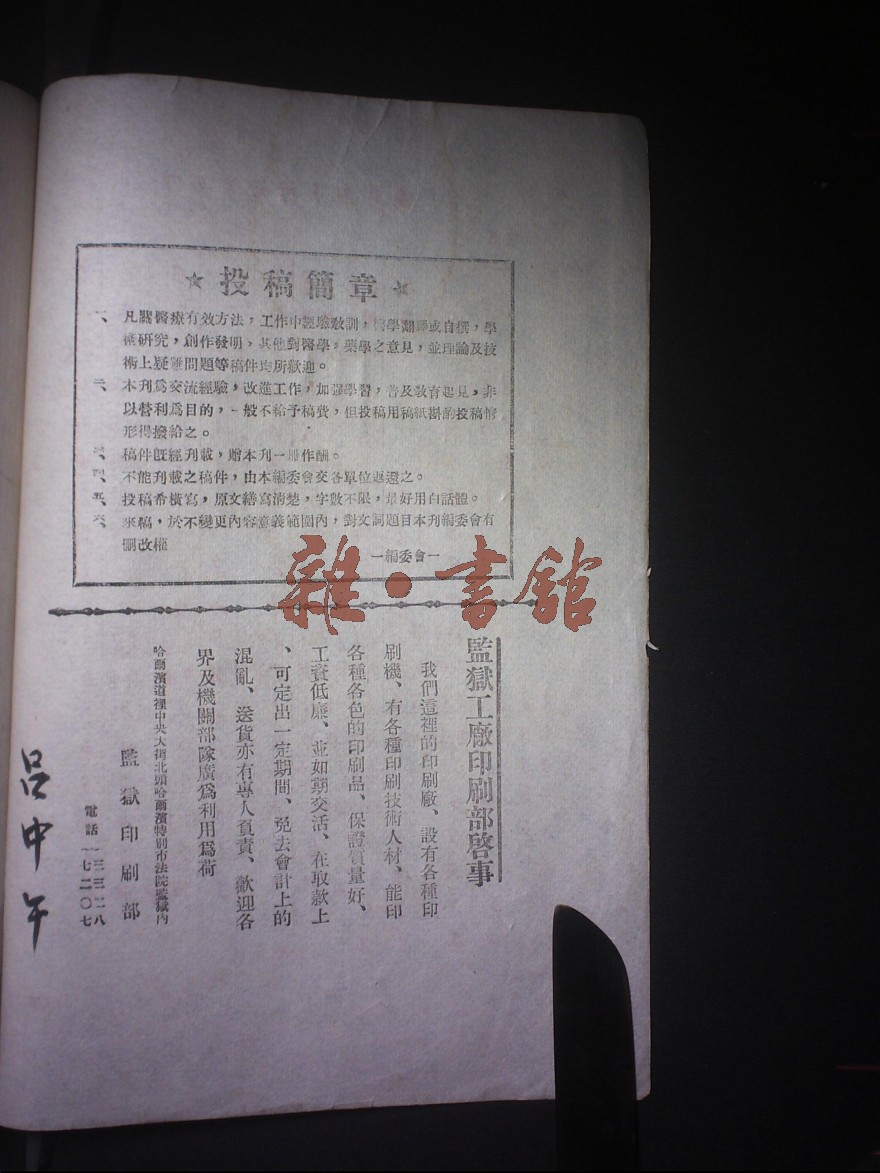 ☆投稿簡章☆
一、凡關醫療有效方法，工作中經驗教訓，醫學翻譯或自撰，學
術研究，創作發明，其他對醫學，藥學之意見，並理論及技
術上疑難問題等稿件均所歡迎。
二、本刊爲交流經驗，改進工作，加强學習，普及教育起見，非
以營利爲目的，一般不給予稿費，但投稿用稿紙斟酌投稿情
形得撥給之。
三、稿件旣經刊載，贈本刊一册作酬。
四、不能刊載之稿件，由本編委會交各單位返還之。
五、投稿希橫寫，原文繕寫淸楚，字數不限，最好用白話體。
六、來稿，於不變更內容意義範圍內，對文詞題目本刊編委會有
刪改權
—編委會—
雜·書舘
監獄工廠印刷部啓事
我們這裡的印刷廠、設有各種印
刷機、有各種印刷技術人材、能印
各種各色的印刷品、保證質量好、
工資低廉、並如期交活、在取款上
、可定出一定期間、免去會計上的
混亂、送貨亦有專人負責、歡迎各
界及機關部隊廣爲利用爲荷
哈爾濱道裡中央大街北頭哈爾濱特別市法院監獄內
監獄印刷部
電話 一三三二八
一七二〇七
呂中午